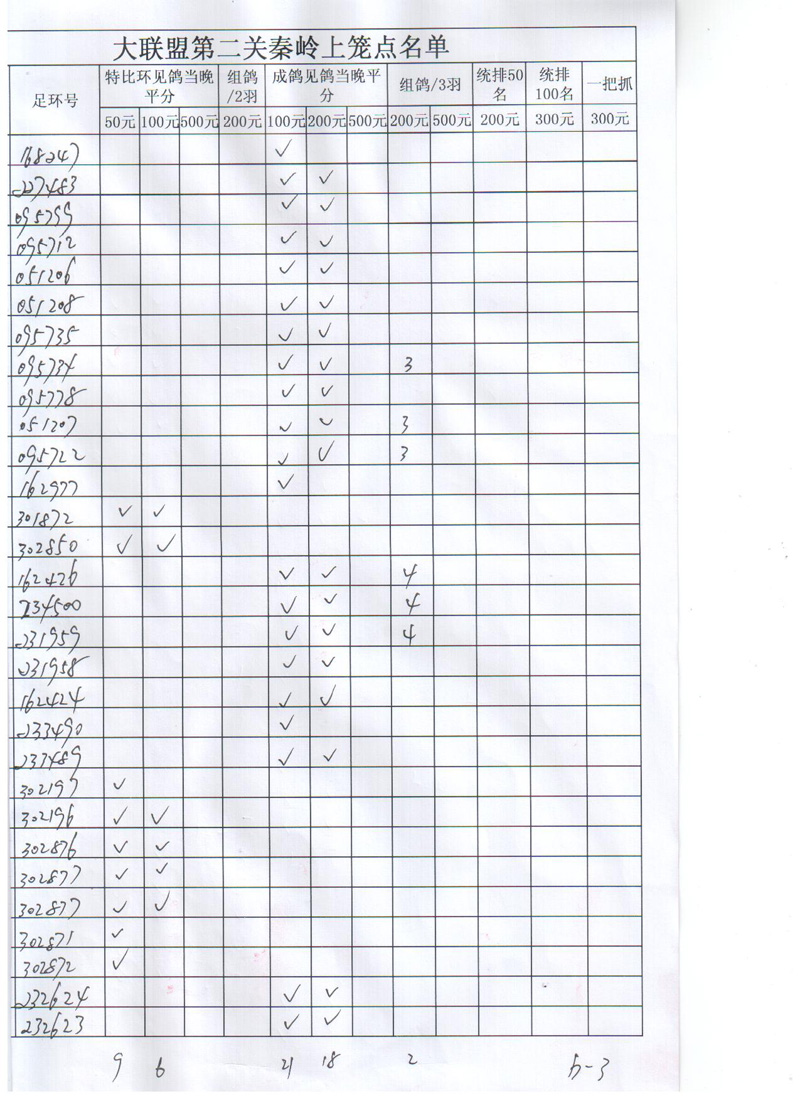 大联盟第二关秦岭上笼点名单
足环号 特比环见鸽当晚平分 组鸽/2羽 成鸽见鸽当晚平分 组鸽/3羽 统排50名 统排100名 一把抓
50元 100元 500元 200元 100元 200元 500元 200元 500元 200元 300元 300元
168247 ✓
227483 ✓ ✓
095799 ✓ ✓
095712 ✓ ✓
051206 ✓ ✓
051208 ✓ ✓
095735 ✓ ✓
095734 ✓ ✓ 3
095778 ✓ ✓
051207 ✓ ✓ 3
095722 ✓ ✓ 3
162977 ✓
301872 ✓ ✓
302850 ✓ ✓
162426 ✓ ✓ 4
234500 ✓ ✓ 4
231959 ✓ ✓ 4
231958 ✓ ✓
162424 ✓ ✓
233490 ✓
233489 ✓ ✓
302197 ✓
302196 ✓ ✓
302876 ✓ ✓
302877 ✓ ✓
302877 ✓ ✓
302871 ✓
302872 ✓
232624 ✓ ✓
232623 ✓ ✓
9 6 21 18 2 b-3